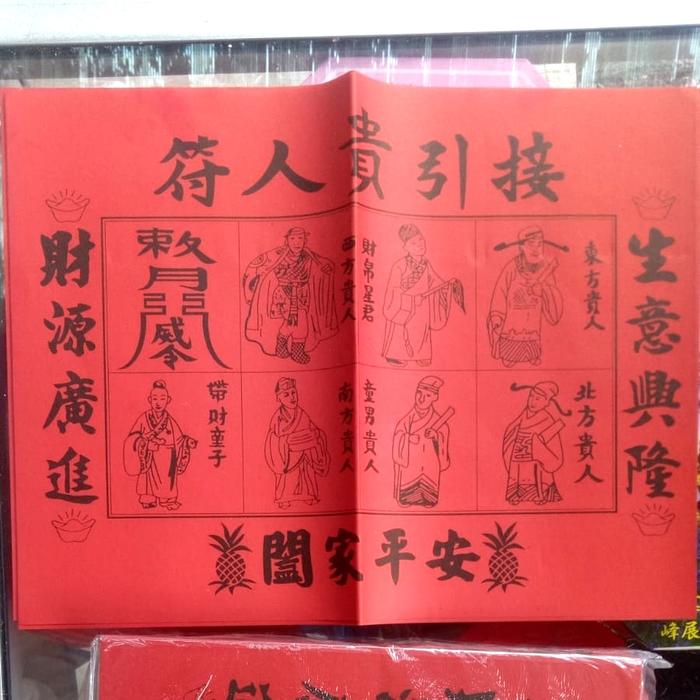 接引貴人符
生意興隆
東方貴人
財帛星君
西方貴人
北方貴人
童男貴人
南方貴人
帶財童子
財源廣進
闔家平安
峰展